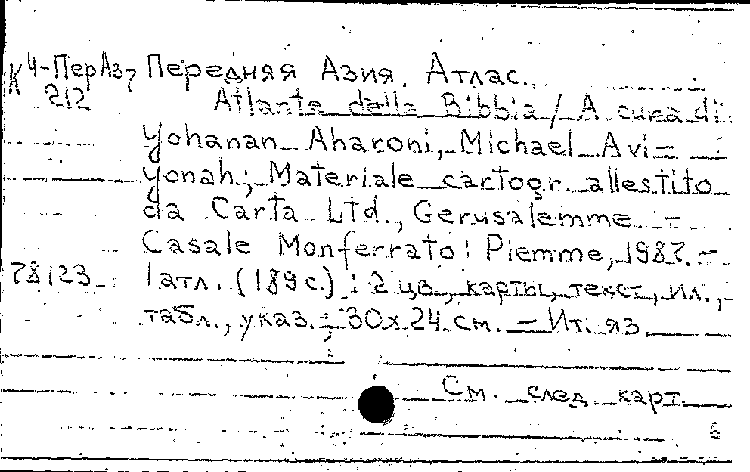 К 4-ПерАз7 Передняя Азия. Атлас.
212 Atlante della Bibbia / A cura di
Yohanan Aharoni, Michael Avi-
yonah; Materiale cartogr. allestito
da Carta Ltd., Gerusalemme. –
Casale Monferrato: Piemme, 1987. –
78123 1 атл. (189 с.) : 2 цв., карты, текст, ил.,
табл., указ. ; 30х24 см. – Ит. яз.
См. след. карт.